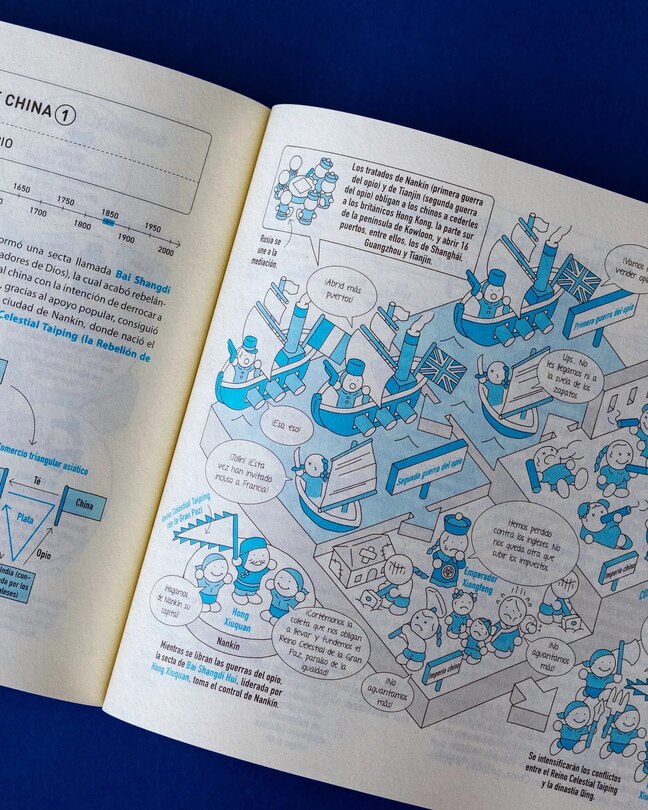 CHINA 1
1650
1750
1850
1950
1700
1800
1900
2000
ormó una secta llamada Bai Shangdi
adores de Dios), la cual acabó rebelán-
al china con la intención de derrocar a
gracias al apoyo popular, consiguió
ciudad de Nankín, donde nació el
Celestial Taiping (la Rebelión de
Comercio triangular asiático
Té
China
Plata
Opio
India (con-
da por los
leses)
Los tratados de Nankín (primera guerra
del opio) y de Tianjin (segunda guerra
del opio) obligan a los chinos a cederles
a los británicos Hong Kong, la parte sur
de la península de Kowloon, y abrir 16
puertos, entre ellos, los de Shanghái,
Guangzhou y Tianjin.
Rusia se
une a la
mediación.
¡Abrid más
puertos!
¡Vamos a
vender opi
Primera guerra del opio
Ups... No
les llegamos ni a
la suela de los
zapatos.
¡Eso, eso!
¡Jolín! ¡Esta
vez han invitado
incluso a Francia!
Segunda guerra del opio
Reino Celestial Taiping
(de la Gran Paz)
Hemos perdido
contra los ingleses. No
nos queda otra que
subir los impuestos.
Emperador
Xianfeng
Imperio chino
Hagamos
de Nankín su
capital!
Hong
Xiuquan
Nankín
¡Cortémonos la
coleta que nos obligan
a llevar y fundemos el
Reino Celestial de la Gran
Paz, paraíso de la
igualdad!
Imperio chino
¡No
aguantamos
más!
¡No
aguantamos
más!
Mientras se libran las guerras del opio,
la secta de Bai Shangdi Hui, liderada por
Hong Xiuquan, toma el control de Nankín.
Se intensificarán los conflictos
entre el Reino Celestial Taiping
y la dinastía Qing.